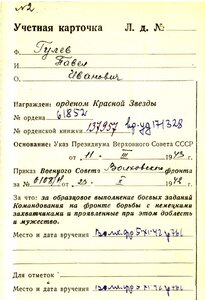 №2.
Учетная карточка Л. д. №
Ф. Гулев
И. Павел
О. Иванович
Награжден: орденом Красной Звезды
№ ордена 61852
№ орденской книжки 137957
Основание: Указ Президиума Верховного Совета СССР
от „11“ III 1943 г.
Приказ Военного Совета Волховского фронта
№ от „25“ X 1942 г.
За что: за образцовое выполнение боевых заданий
Командования на фронте борьбы с немецкими
захватчиками и проявленные при этом доблесть
и мужество.
Место и дата вручения
Для отметок
Место и дата вручения